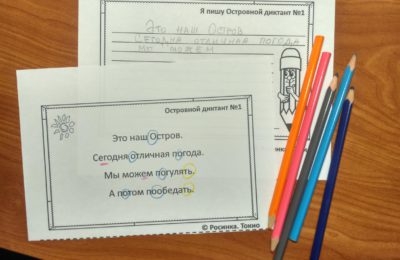 Я пишу Островной диктант №1
Это наш Остров
Сегодня отличная погода
мы можем
Островной диктант №1
Это наш Остров.
Сегодня отличная погода.
Мы можем погулять.
А потом пообедать.
© Росинка. Токио